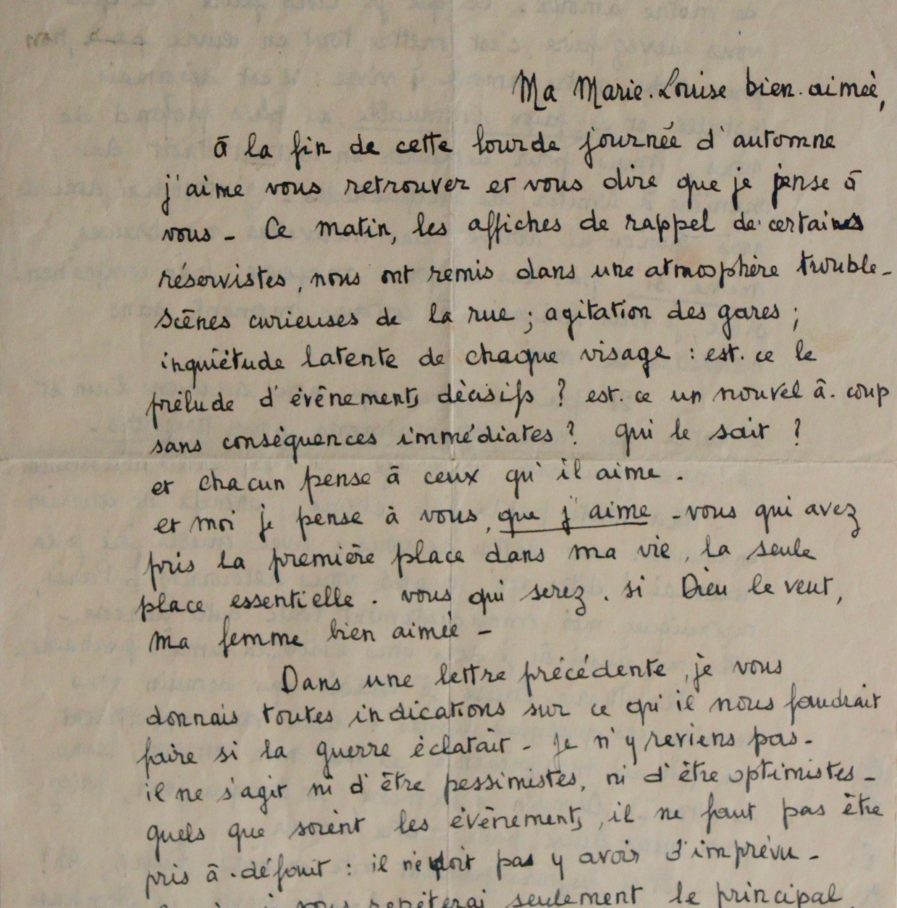 Ma Marie-Louise bien-aimée,
à la fin de cette lourde journée d'automne
j'aime vous retrouver et vous dire que je pense à
vous - Ce matin, les affiches de rappel de certaines
réservistes, nous ont remis dans une atmosphère trouble -
scènes curieuses de la rue ; agitation des gares ;
inquiétude latente de chaque visage : est-ce le
prélude d'évênements décisifs ? est-ce un nouvel à-coup
sans conséquences immédiates ? qui le sait ?
et chacun pense à ceux qu'il aime.
et moi je pense à vous, que j'aime - vous qui avez
pris la première place dans ma vie, la seule
place essentielle. vous qui serez, si Dieu le veut,
ma femme bien aimée -
Dans une lettre précédente, je vous
donnais toutes indications sur ce qu'il nous faudrait
faire si la guerre éclatait - je n'y reviens pas -
il ne s'agit ni d'être pessimistes, ni d'être optimistes -
quels que soient les évênements, il ne faut pas être
pris à défaut : il ne doit pas y avoir d'imprévu -
vous répéterai seulement le principal